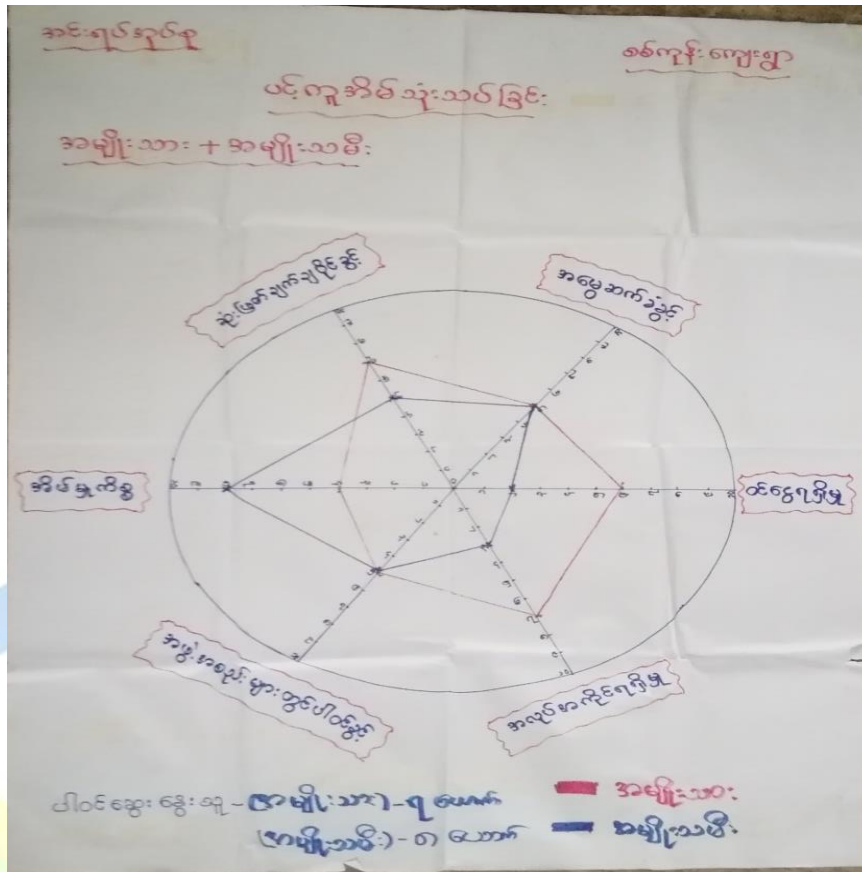 အင်းရပ်အုပ်စု
စစ်ကုန်းကျေးရွာ
ပင့်ကူအိမ်သုံးသပ်ခြင်း
အမျိုးသား + အမျိုးသမီး
ဆုံးဖြတ်ချက်ချပိုင်ခွင့်
အမွေဆက်ခံခွင့်
အိမ်မှုကိစ္စ
ဝင်ငွေရရှိမှု
အဖွဲ့အစည်းများတွင်ပါဝင်ခွင့်
အလုပ်အကိုင်ရရှိမှု
ပါဝင်ဆွေးနွေးသူ - (အမျိုးသား) - ၇ ယောက်
အမျိုးသား
(အမျိုးသမီး) - ၈ ယောက်
အမျိုးသမီး